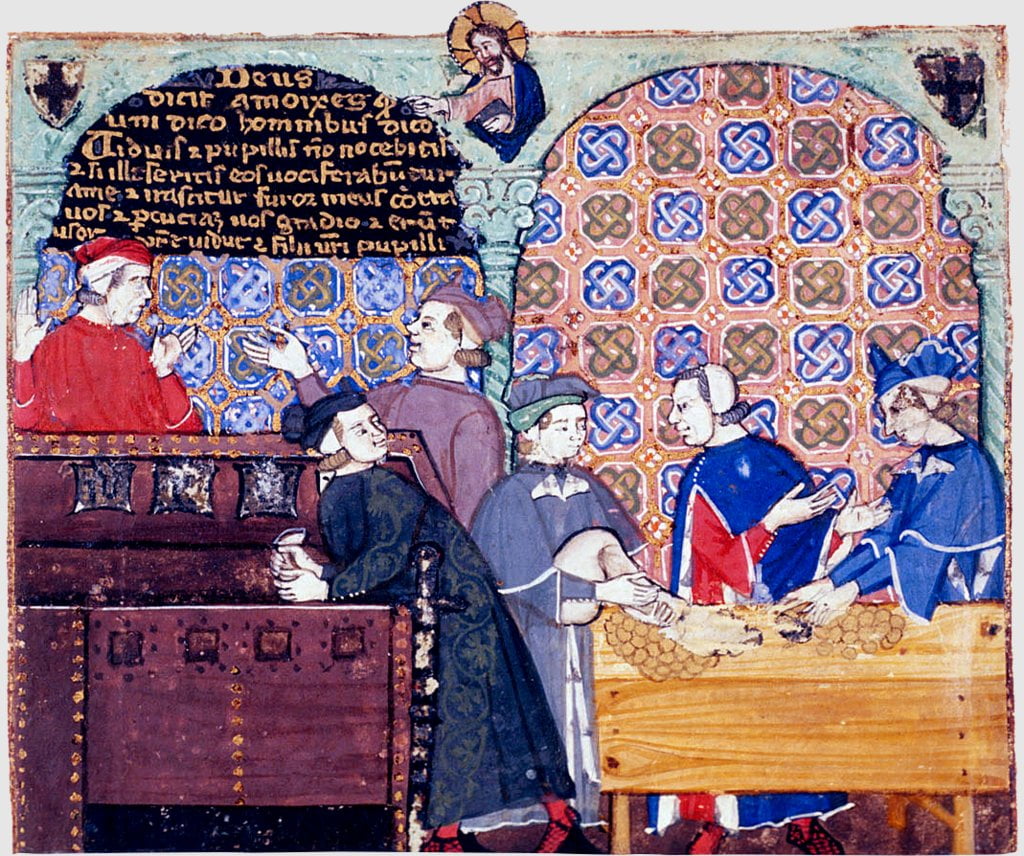 Deus
dicit amoixes q̄
uni dico homnibus dico
Uiduis ⁊ pupillis nō nocebitis
⁊ si eos uociferabūt
ame ⁊ irascitur furor meus cōtra
uos ⁊ ꝑcuciaz uos gladio ⁊ erūt
uidue ⁊ filii uri pupilli